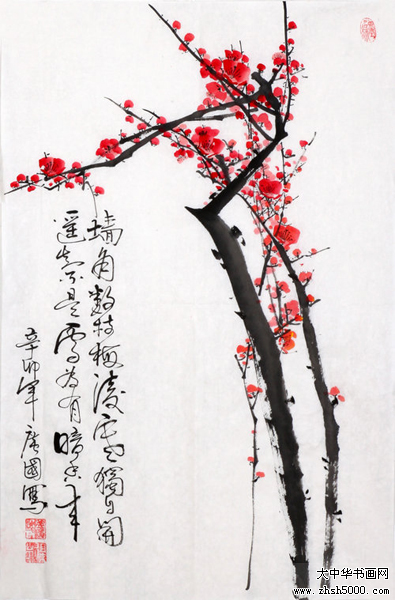 墙角数枝梅凌寒獨自開
遥知不是雪为有暗香来
辛卯年广國寫
大中华书画网
www.zhsh5000.com